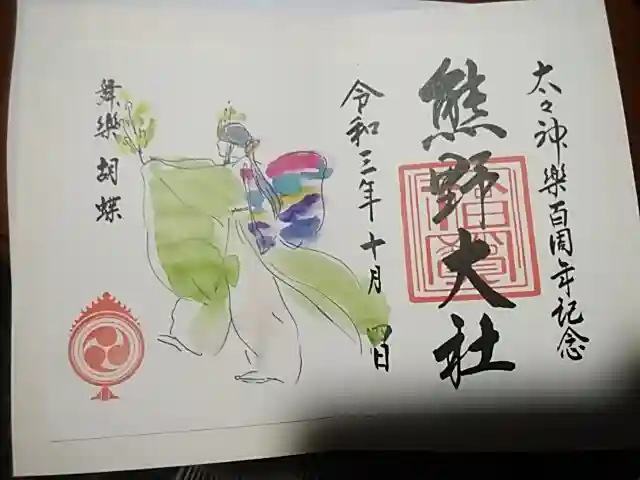 太々神樂百周年記念
熊野大社
令和三年十月四日
舞樂 胡蝶